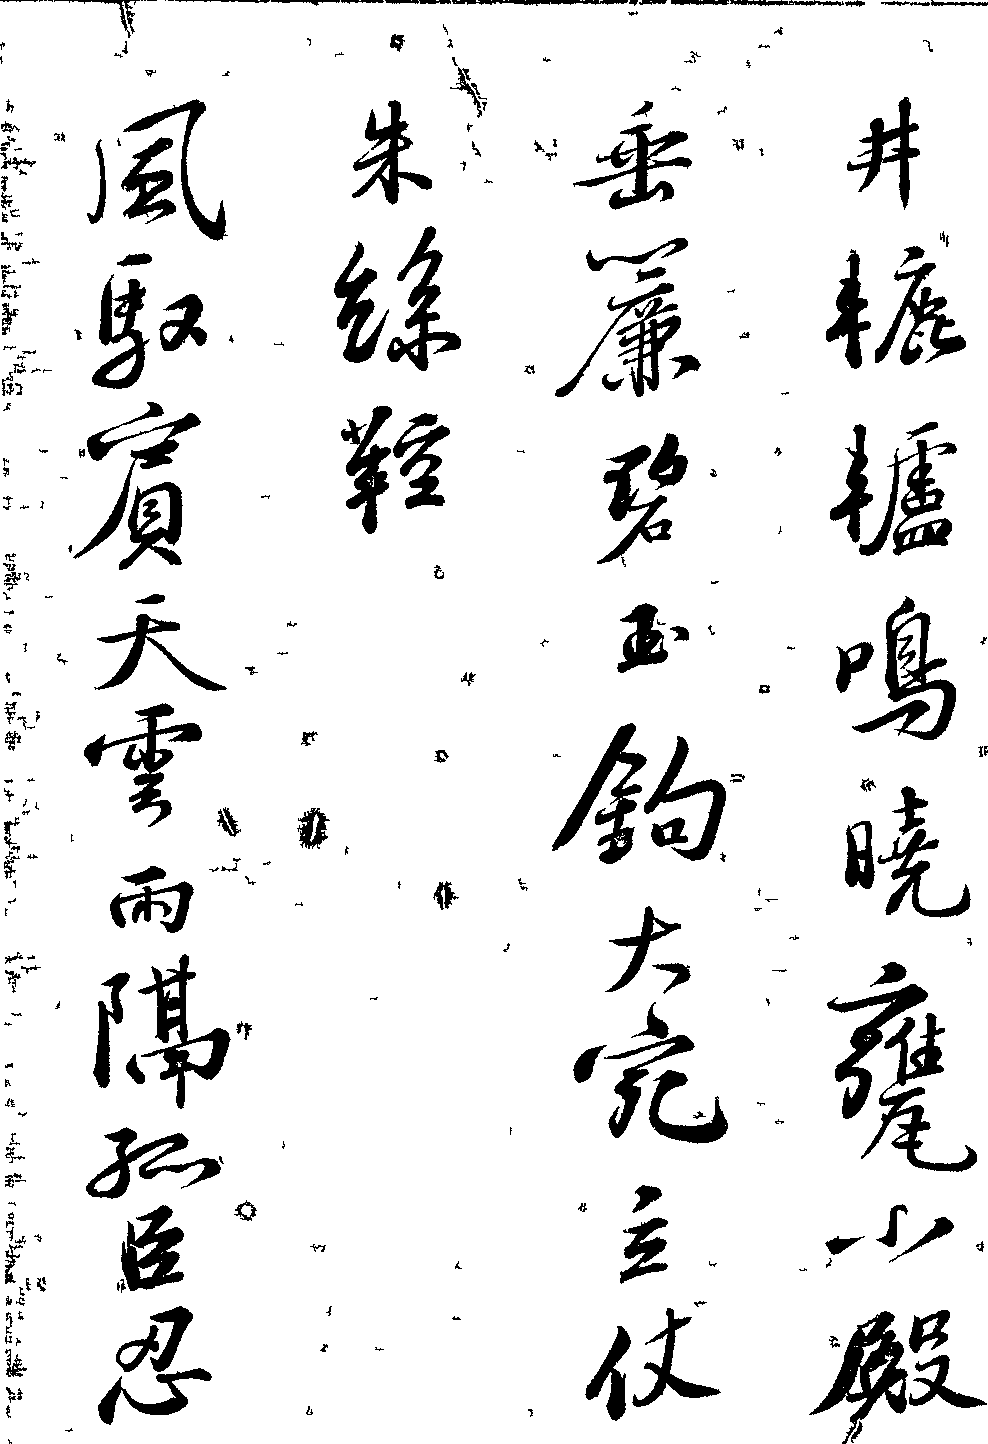 井轆轤鳴曉甕小殿
垂簾碧玉鉤大宛立仗
朱絲鞚
風馭賓天雲雨隔孤臣忍